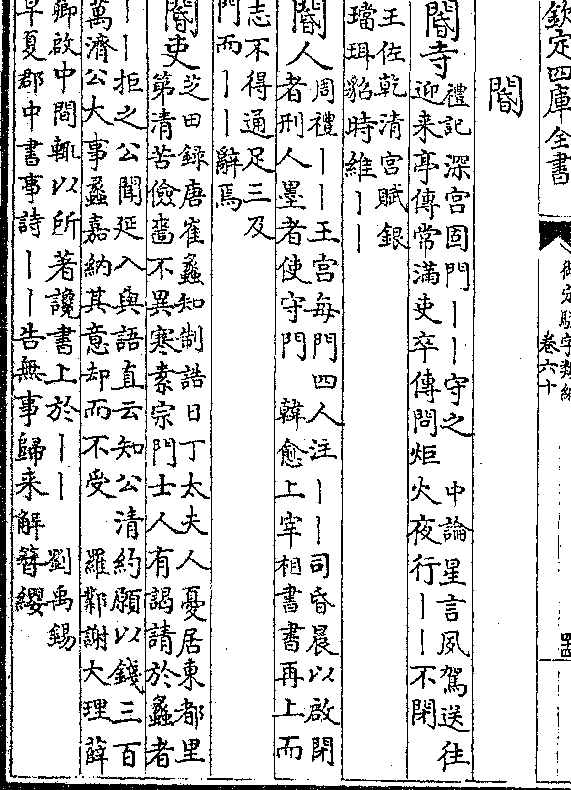 欽定四庫全書
卷六十
閽
閽寺
禮記深宮固門丨丨守之 中論星言夙駕送往
迎来亭傳常滿吏卒傳問炬火夜行丨丨不閉
王佐乾清宮賦銀
璫珥貂時維丨丨
閽人
周禮丨丨王宮每門四人注丨丨司昏晨以啟閉
者刑人墨者使守門 韓愈上宰相書書再上而
志不得通足三及
門而丨丨辭焉
閽吏
芝田録唐崔蠡知制誥日丁太夫人憂居東都里
第清苦儉嗇不異寒素宗門士人有謁請於蠡者
丨丨拒之公聞延入與語直云知公清約願以錢三百
萬濟公大事蠡嘉納其意却而不受 羅鄴謝大理薛
卿啟中間輙以所著讒書上於丨丨 劉禹錫
早夏郡中書事詩丨丨告無事歸来解簪纓